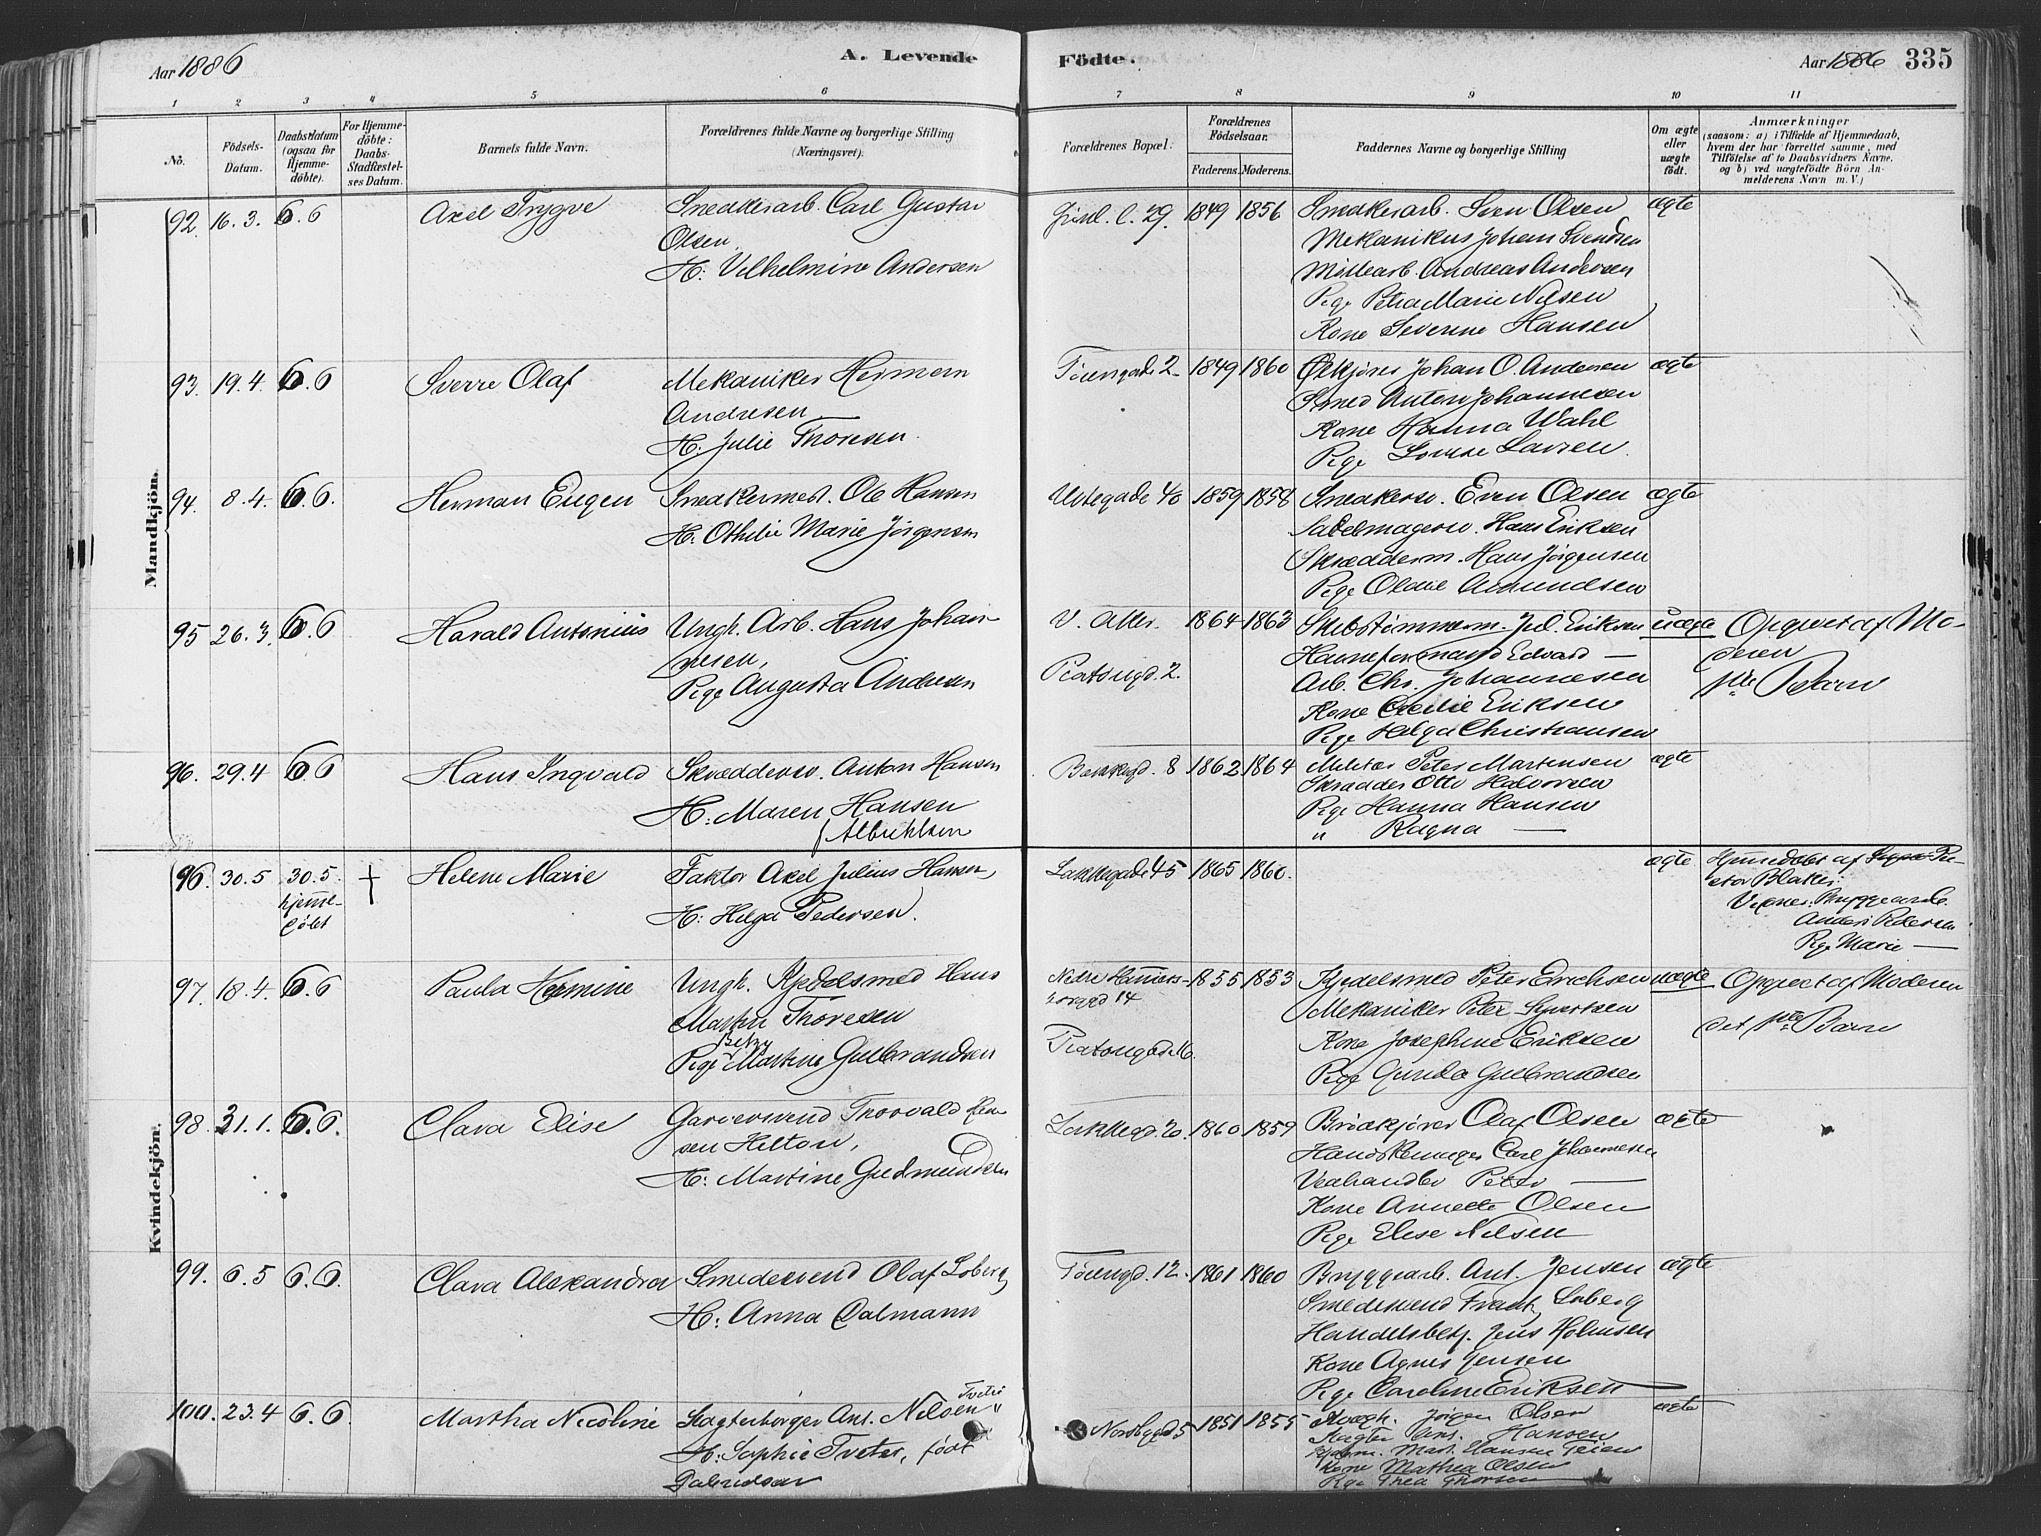 Aar 1886
A. Levende
Födte.
Aar 1886
335
1 2 3 4 5 6 7 8 9 10 11
No.
Födsels-
Datum.
Daabsdatum
(ogsaa for
Hjemme-
döbte).
For Hjemme-
döbte:
Daabs-
Stadfæstel-
ses Datum.
Barnets fulde Navn.
Forældrenes fulde Navne og borgerlige Stilling
(Næringsvei).
Forældrenes Bopæl.
Forældrenes
Födselsaar.
Faderens. Moderens.
Faddernes Navne og borgerlige Stilling
Om ægte
eller
uægte
født.
Anmærkninger
(saasom: a) i Tilfælde af Hjemmedaab,
hvem der har forrettet samme, med
Tilföielse af to Daabsvidners Navne,
og b) ved uægtefödte Börn An-
melderens Navn m. V.)
Mandkjön.
92. 16.3. 6.6 Axel Trygve
Snedkerarb. Carl Gustav
Olsen,
H: Vilhelmine Andersen
1849 1856
Snedkerarb. Sven Olsen
Mekanikus Johan Svendsen
Möllearb. Andreas Andersen
Pige Petra Marie Nilsen
Kone Severine Hansen
ægte
93. 19.4. 6.6 Sverre Olaf
Mekaniker Hermann
Andresen
H. Julie Thoresen.
Töiengade 2 1849 1860
Ölkjörer Johan O. Andersen
Smed Anton Johannesen
Kone Hanna Wahl
Pige Lovise Larsen.
ægte
94. 8.4. 6.6. Herman Eugen
Snedkermest. Ole Hansen
H: Othilie Marie Jörgensen
Urtegade 40 1859 1858
Snedkersv. Even Olsen
Sadelmagersv. Hans Eriksen
Skrædderm. Hans Jörgensen
Pige Oldine Amundsen
ægte
95 26.3. 6.6 Harald Antonius
Ungk. Arb. Hans Johan-
nesen,
Pige Augusta Andresen
V. Aker.
Platougd. 2.
1864 1863
Skibstömmerm. Joh. Eriksen
Edvard —
Arb. Chr. Johannesen
Kone Cecilie Eriksen
Pige Helga Christiansen
uægte
Opgivet af Mo-
deren
1ste Barn
96. 29.4 6.6 Hans Ingvald
Skræddersv. Anton Hansen
H: Maren Hansen
f. Albriktsen
8 1862 1864
Peter Martinsen
Skrædder Otto Halvorsen
Pige Hanna Hansen
" Ragna —
ægte
Kvindekjön.
96. 30.5 30.5. † Helene Marie
hjemme-
döbt
Faktor Axel Julius Hansen
H: Helga Pedersen.
Lakkegade 45 1865 1860.
ægte
Hjemmedöbt af
Vidner. Bryggearb.
Anders Pedersen
Pige Marie —
97. 18.4. 6.6 Paula Hermine
Ungk. Kjedelsmed Hans
Martin Thoresen
Betzy
Pige Martine Gulbrandsen
14
Platougade 16.
1855 1853
Kjedelsmed Peter Erichsen
Mekaniker Peter Syvertsen
Kone Josephine Eriksen
Pige Gunda Gulbrandsen
uægte
Opgivet af Moderen
det 1ste Barn
98. 31.1. 6.6. Clara Elise
Garversvend Thorvald Han-
sen Hilton,
H: Martine Gudmundsen
Lakkegd. 20. 1860 1859
Brödkjörer Olaf Olsen
Carl Johannesen
Vedhandler Peter —
Kone Annette Olsen
Pige Elise Nilsen
ægte
99. 6.5 6.6. Clara Alexandra
Smedesvend Olaf Loberg
H: Anna Dalmann
Töiengd. 12. 1861 1860
Bryggearb. Ant. Jensen
Smedesvend Frantz Loberg
Handelsbetj. Jens Holmsen
Kone Agnes Jensen
Pige Caroline Eriksen
ægte
100. 23.4 6.6. Martha Nicoline
Slagterborger Ant. Nilsen
Tveter
H: Sophie Tveter, födt
Gabrielsen
Norbygd 5 1851 1855
Jörgen Olsen
Slagter Ant. Hansen
Mart. Hansen Teien
Kone Mathea Olsen
Pige Thea Thorsen
ægte